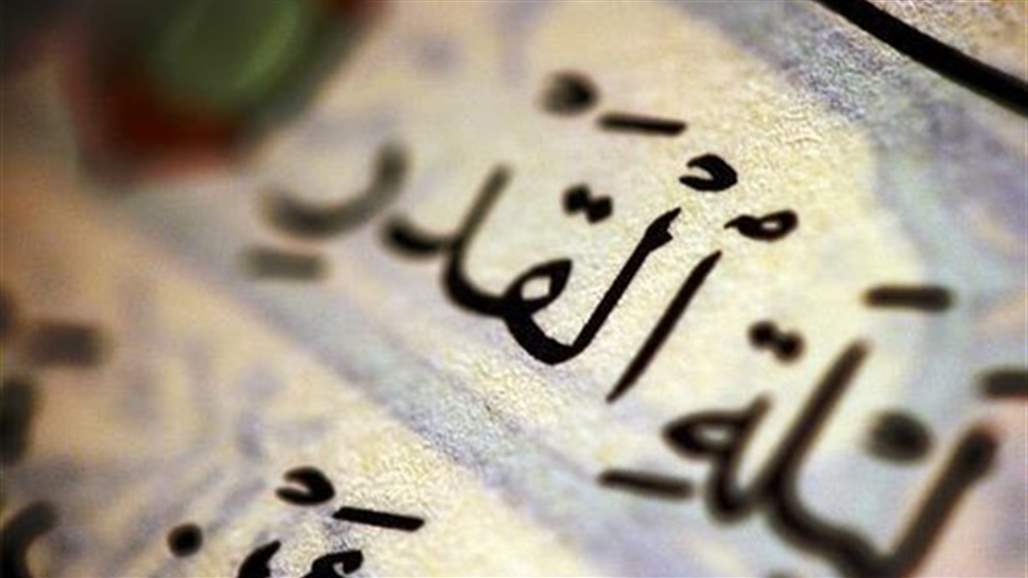 لَيْلَةِ ٱلْقَدْرِ